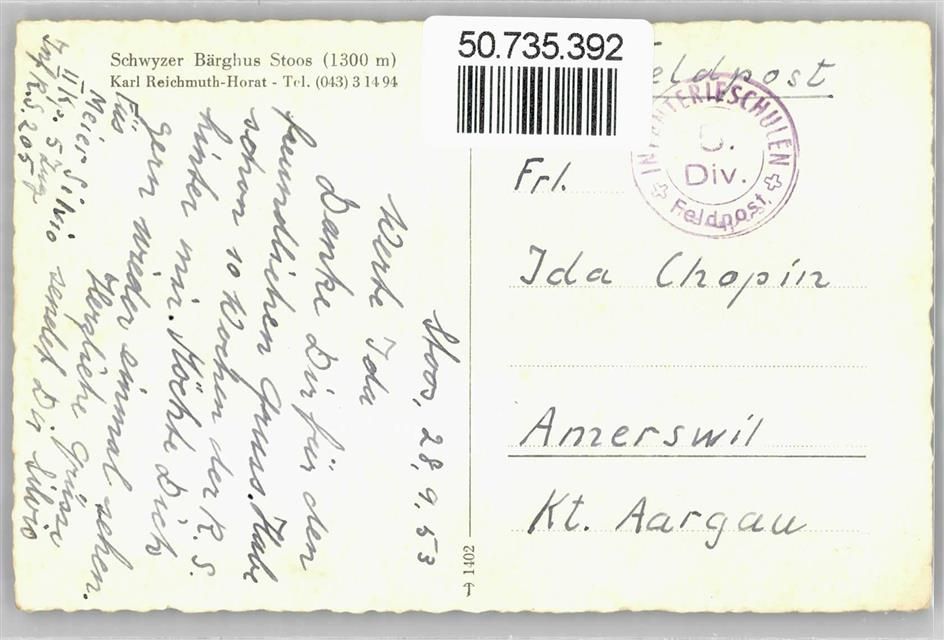 Schwyzer Bärghus Stoos (1300 m)
Karl Reichmuth-Horat - Tel. (043) 3 14 94
50.735.392
Feldpost
INFANTERIESCHULEN
5.
Div.
Feldpost
Frl.
Ida Chopin
Amerswil
Kt. Aargau
1402
Stoos, 28, 9, 53
Werte Ida
Danke Dir für den
freundlichen Gruss. Habe
schon 10 Wochen der R. S.
hinter mir. Möchte Dich
gern wieder einmal sehen.
Herzliche Grüsse
sendet Dir Silvio
Füs
Meier Silvio
II Kp. 5 Zug
Inf. R.S. 205